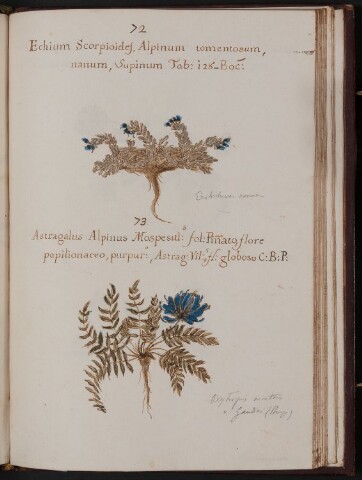 72
Echium Scorpioides, Alpinum tomentosum,
nanum, Supinum Tab: 125 Boc:
Eritrichum nanum
73
Astragalus Alpinus Mospesul: fol: Pinatq flore
papilionaceo, purpur:, Astrag. Vil: fl: globoso C: B: P:
Oxytropis montana
Gaudin